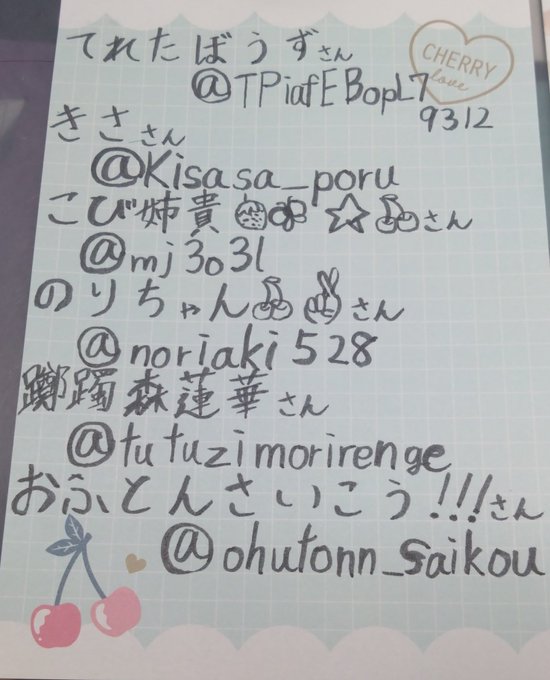 てれたぼうずさん
CHERRY
love
@TPiafEBopL7
9312
きささん
@Kisasa_poru
こび姉貴🍓🦋☆🍒さん
@mj3o3l
のりちゃん🍒✌さん
@noriaki528
躑躅森蓮華さん
@tutuzimorirenge
おふとんさいこう!!!さん
@ohutonn_saikou